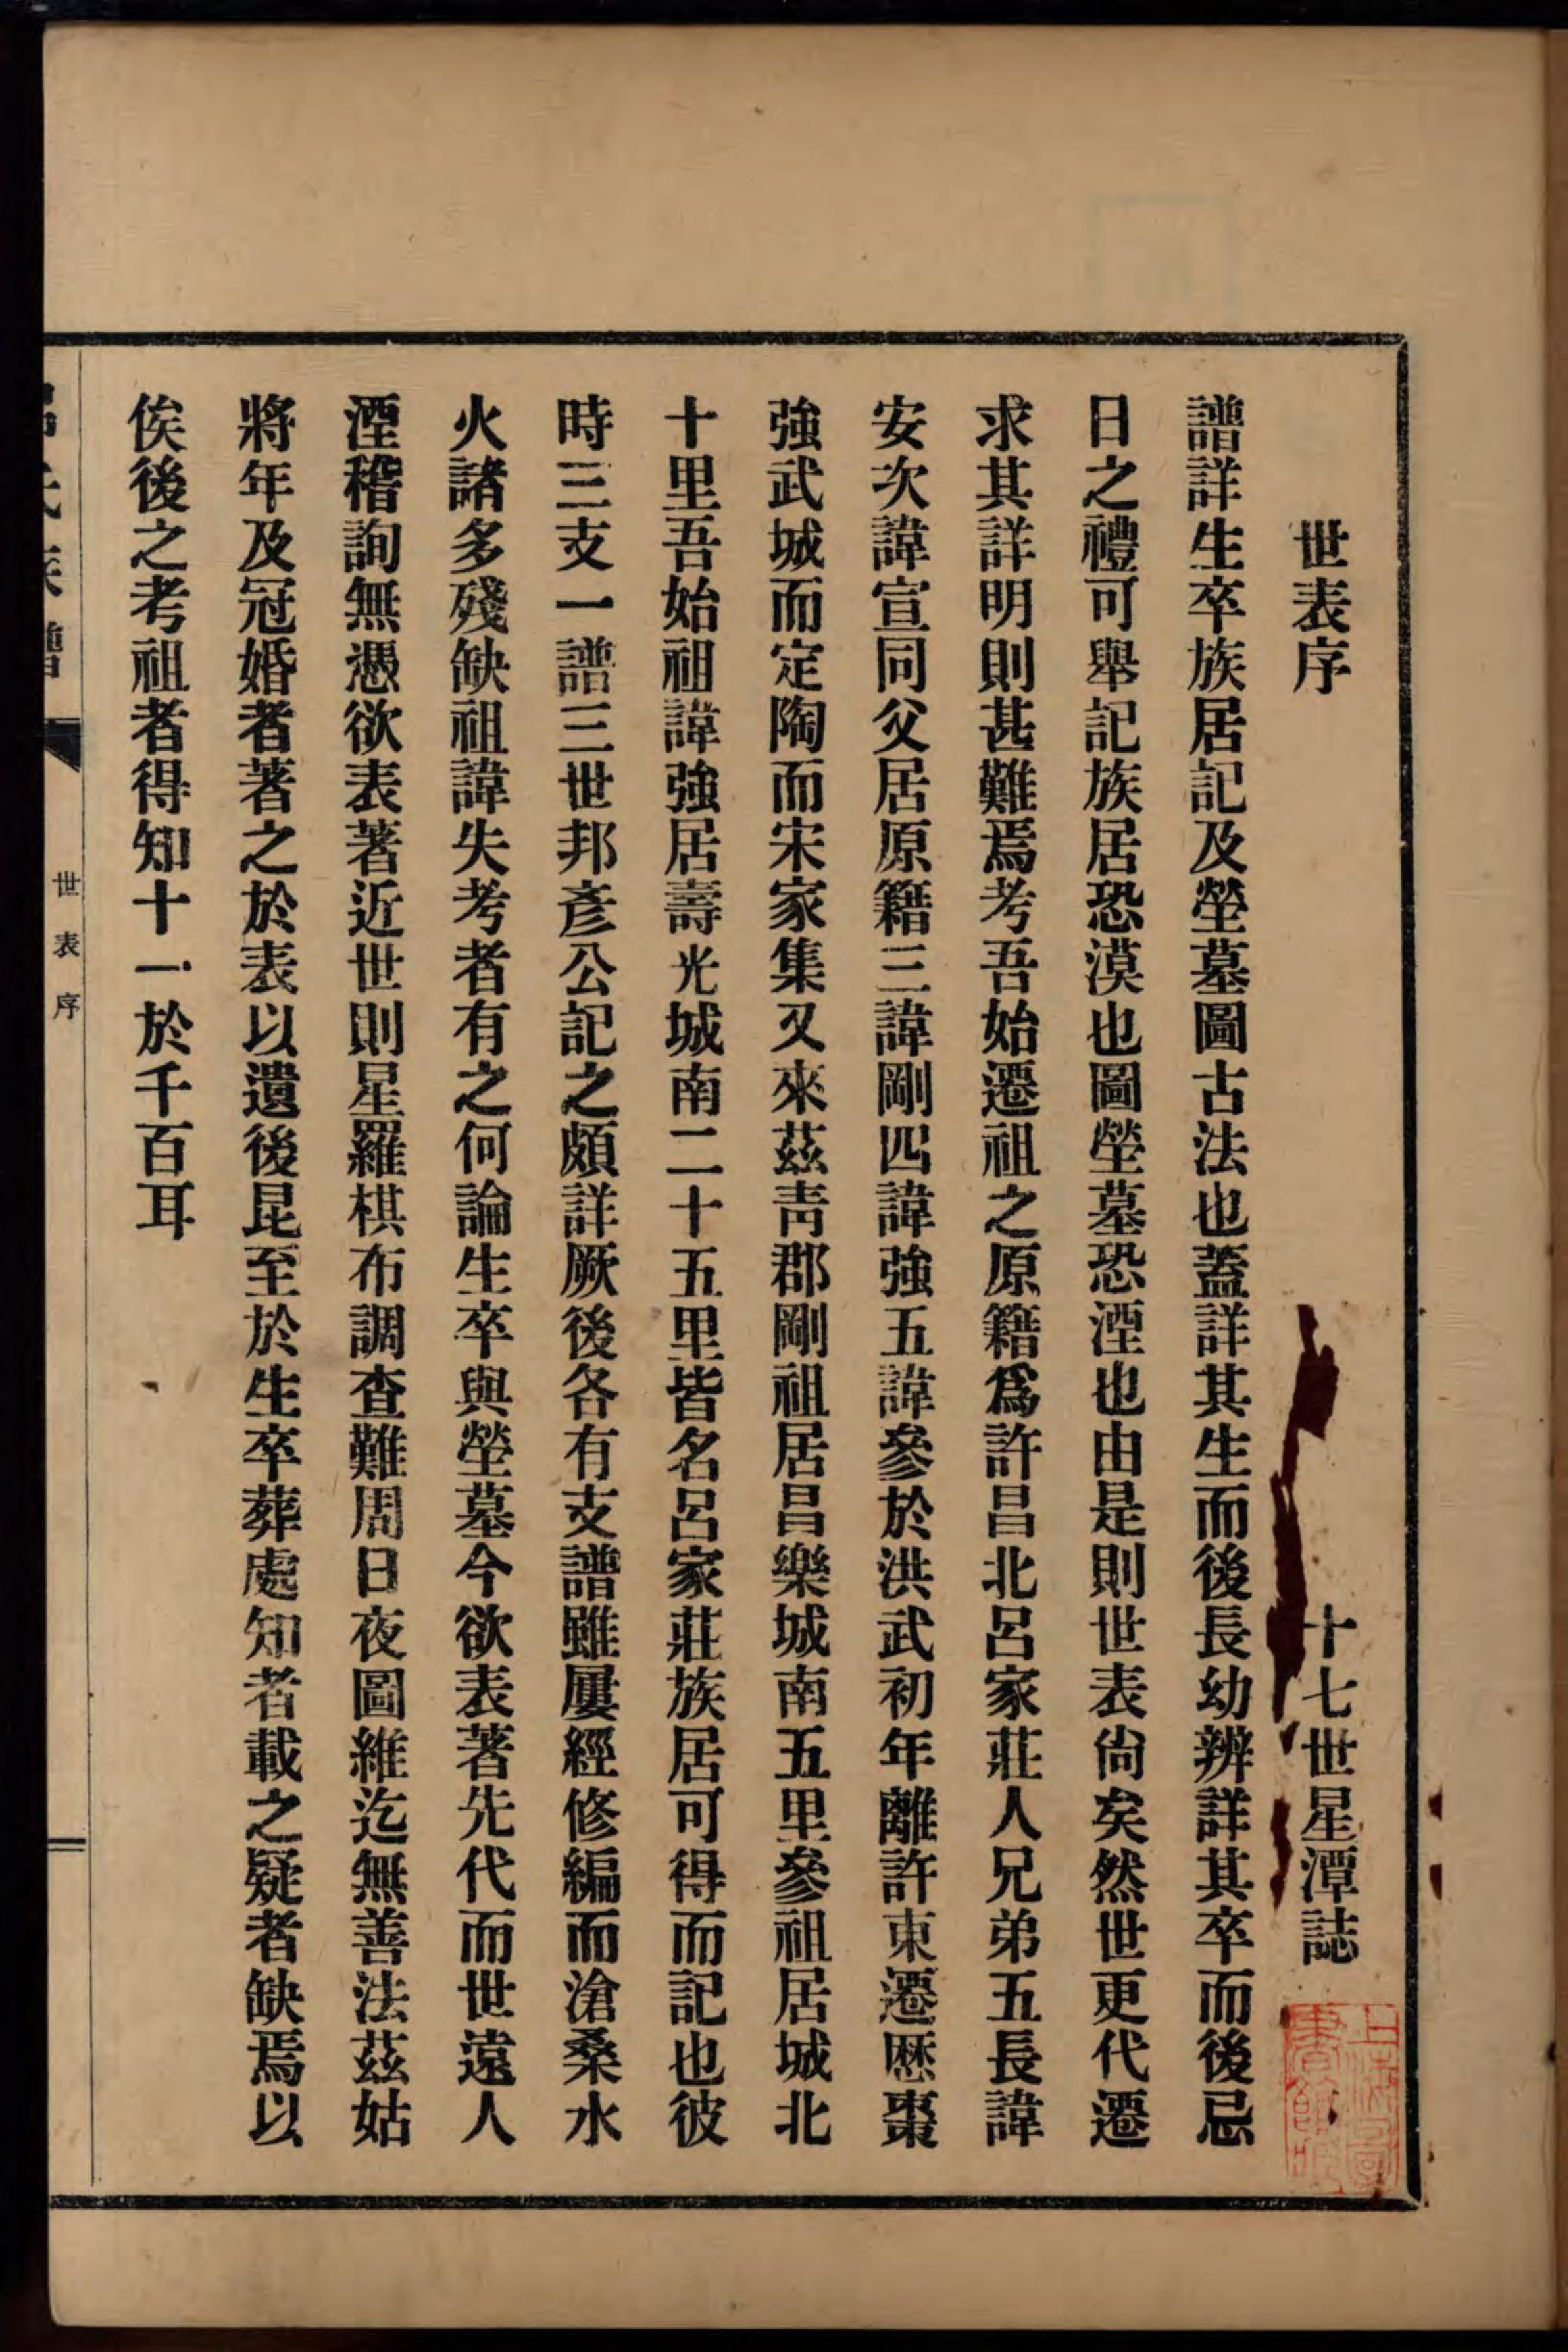 世表序 十七世星潭誌
譜詳生卒族居記及塋墓圖古法也蓋詳其生而後長幼辨詳其卒而後忌
日之禮可舉記族居恐漠也圖塋墓恐湮也由是則世表尙矣然世更代遷
求其詳明則甚難焉考吾始遷祖之原籍爲許昌北呂家莊人兄弟五長諱
安次諱宣同父居原籍三諱剛四諱強五諱參於洪武初年離許東遷歷棗
強武城而定陶而宋家集又來茲靑郡剛祖居昌樂城南五里參祖居城北
十里吾始祖諱強居壽光城南二十五里皆名呂家莊族居可得而記也彼
時三支一譜三世邦彥公記之頗詳厥後各有支譜雖屢經修編而滄桑水
火諸多殘缺祖諱失考者有之何論生卒與塋墓今欲表著先代而世遠人
湮稽詢無憑欲表著近世則星羅棋布調查難周日夜圖維迄無善法茲姑
將年及冠婚者著之於表以遺後昆至於生卒葬處知者載之疑者缺焉以
俟後之考祖者得知十一於千百耳
世表序